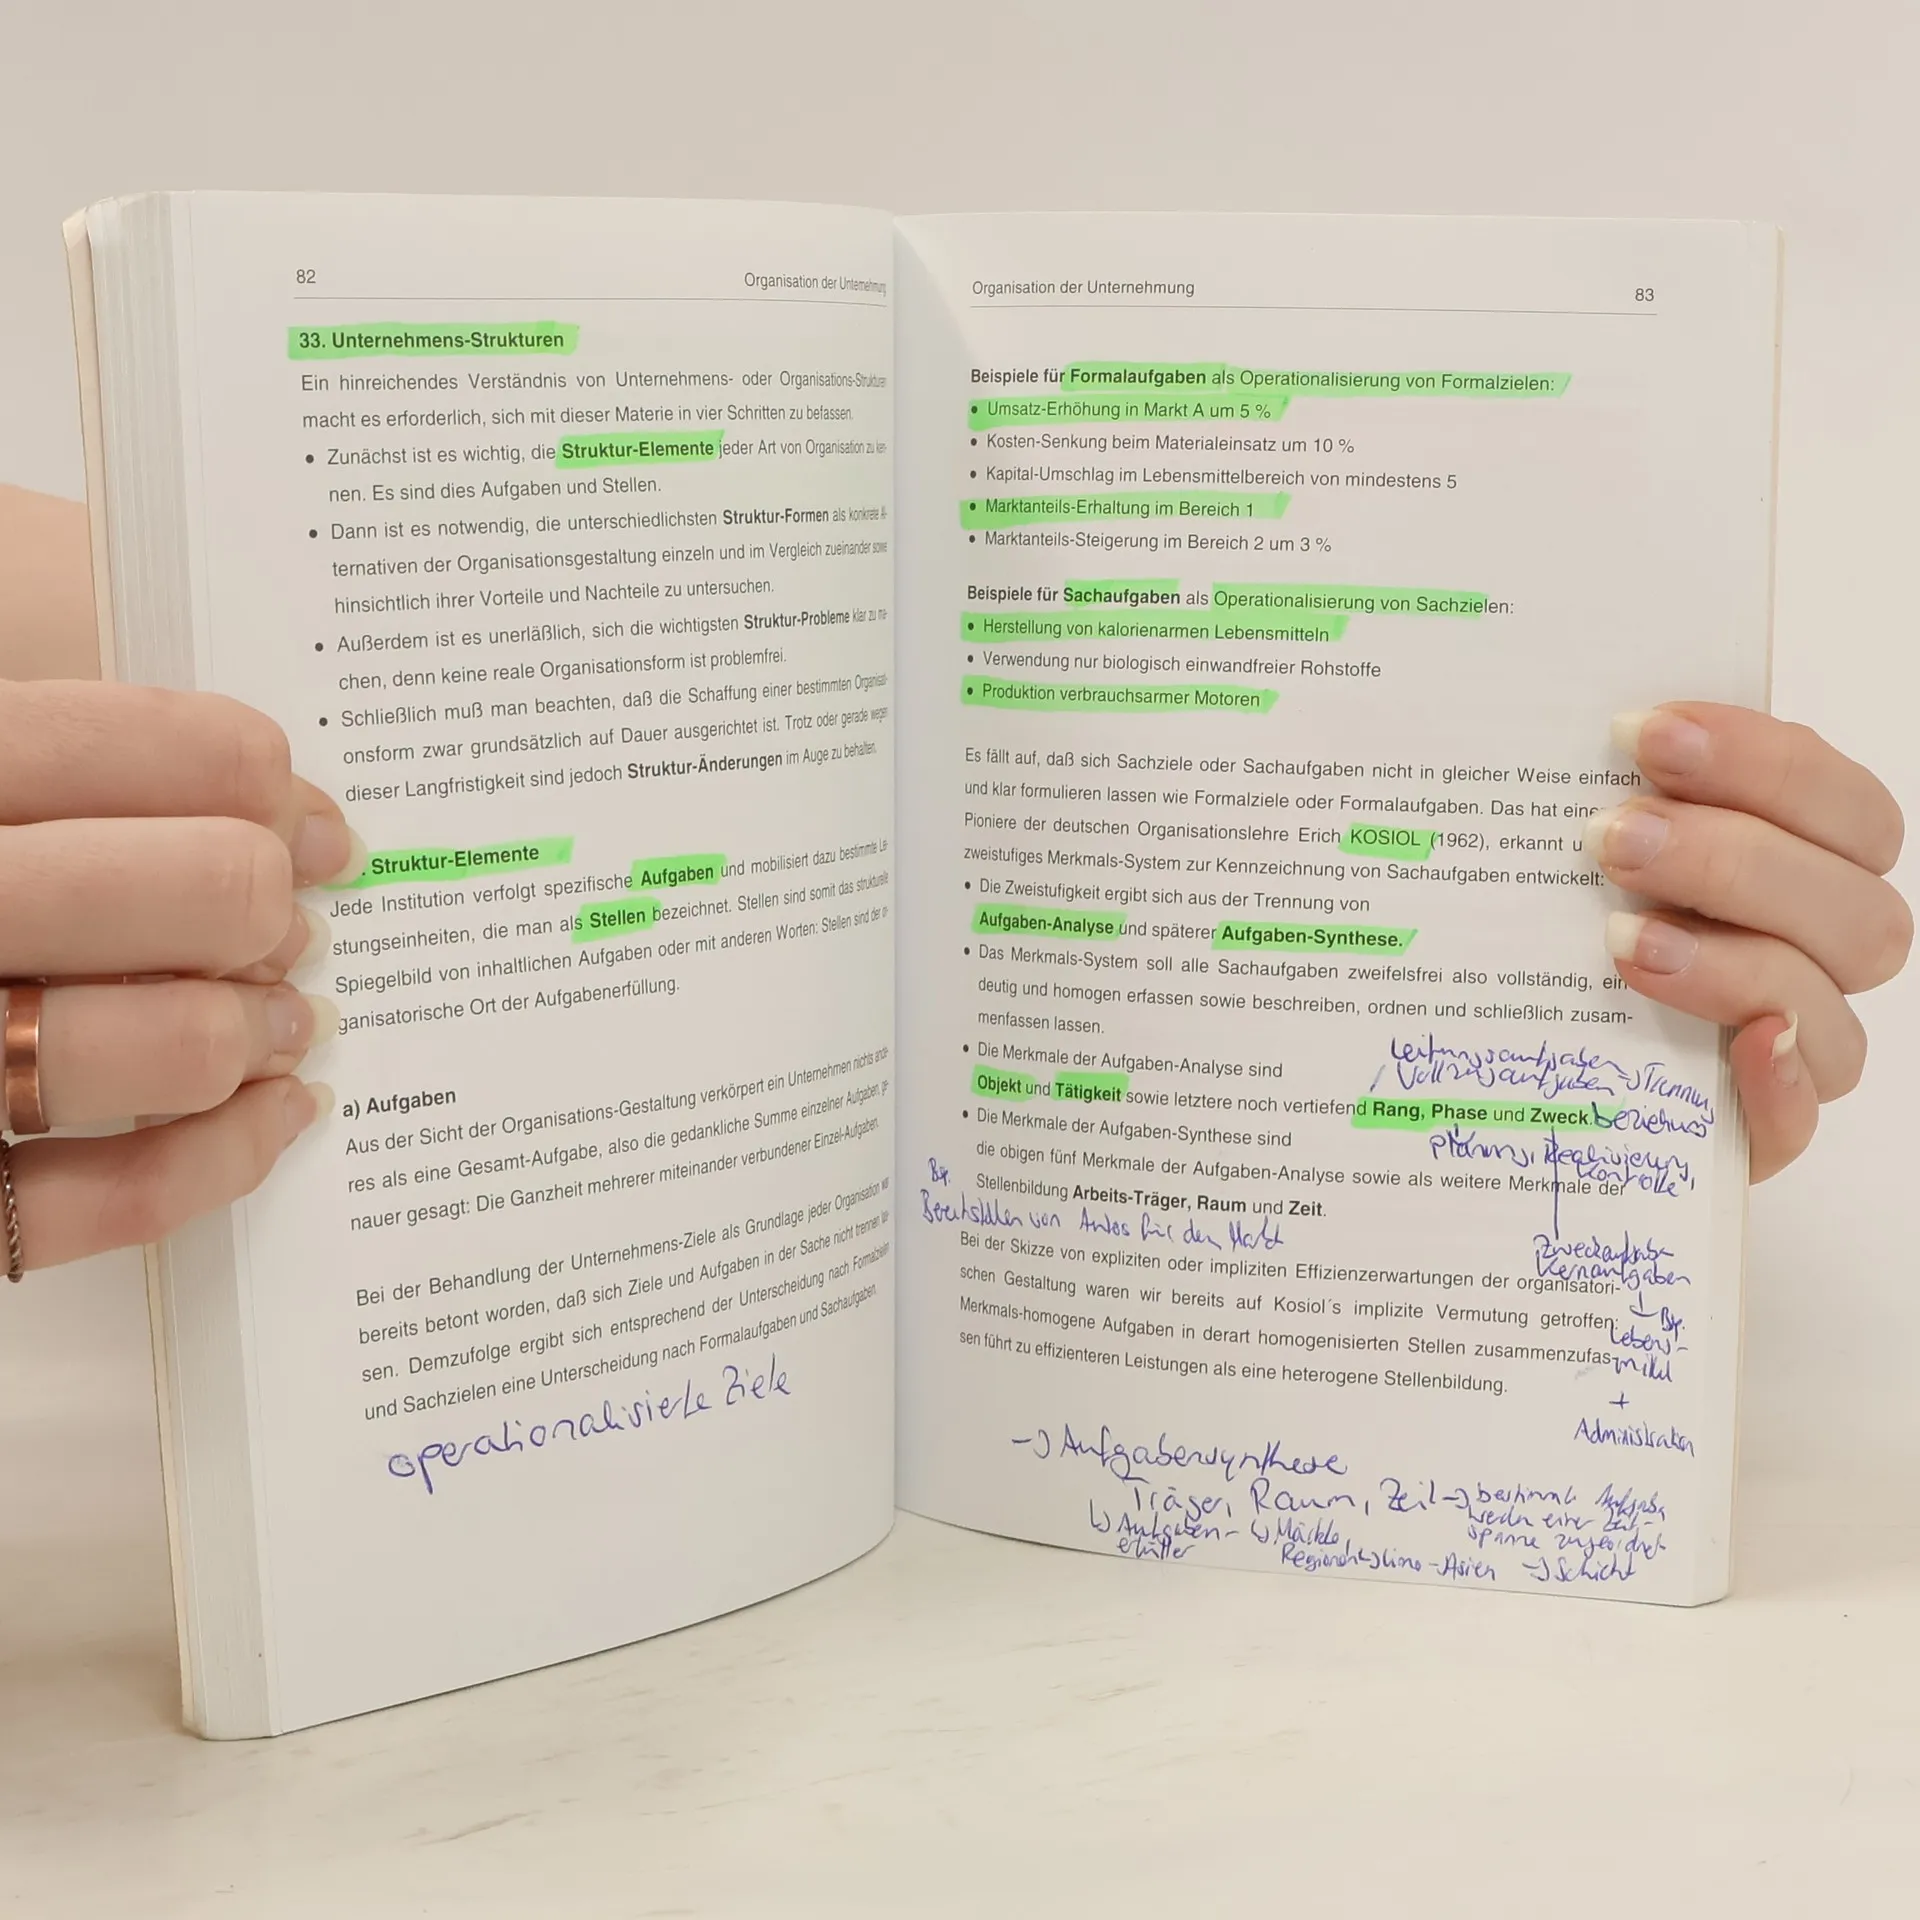 82
Organisation der Unternehmung
33. Unternehmens-Strukturen
Ein hinreichendes Verständnis von Unternehmens- oder Organisations-Strukturen
macht es erforderlich, sich mit dieser Materie in vier Schritten zu befassen.
• Zunächst ist es wichtig, die Struktur-Elemente jeder Art von Organisation zu ken-
nen. Es sind dies Aufgaben und Stellen.
• Dann ist es notwendig, die unterschiedlichsten Struktur-Formen als konkrete Al-
ternativen der Organisationsgestaltung einzeln und im Vergleich zueinander sowie
hinsichtlich ihrer Vorteile und Nachteile zu untersuchen.
• Außerdem ist es unerläßlich, sich die wichtigsten Struktur-Probleme klar zu ma-
chen, denn keine reale Organisationsform ist problemfrei.
• Schließlich muß man beachten, daß die Schaffung einer bestimmten Organisati-
onsform zwar grundsätzlich auf Dauer ausgerichtet ist. Trotz oder gerade wegen
dieser Langfristigkeit sind jedoch Struktur-Änderungen im Auge zu behalten.
. Struktur-Elemente
Jede Institution verfolgt spezifische Aufgaben und mobilisiert dazu bestimmte Lei-
stungseinheiten, die man als Stellen bezeichnet. Stellen sind somit das strukturelle
Spiegelbild von inhaltlichen Aufgaben oder mit anderen Worten: Stellen sind der or-
ganisatorische Ort der Aufgabenerfüllung.
a) Aufgaben
Aus der Sicht der Organisations-Gestaltung verkörpert ein Unternehmen nichts ande-
res als eine Gesamt-Aufgabe, also die gedankliche Summe einzelner Aufgaben, ge-
nauer gesagt: Die Ganzheit mehrerer miteinander verbundener Einzel-Aufgaben.
Bei der Behandlung der Unternehmens-Ziele als Grundlage jeder Organisation war
bereits betont worden, daß sich Ziele und Aufgaben in der Sache nicht trennen las-
sen. Demzufolge ergibt sich entsprechend der Unterscheidung nach Formalzielen
und Sachzielen eine Unterscheidung nach Formalaufgaben und Sachaufgaben.
operationalisierte Ziele
Organisation der Unternehmung
83
Beispiele für Formalaufgaben als Operationalisierung von Formalzielen:
• Umsatz-Erhöhung in Markt A um 5 %
• Kosten-Senkung beim Materialeinsatz um 10 %
• Kapital-Umschlag im Lebensmittelbereich von mindestens 5
• Marktanteils-Erhaltung im Bereich 1
• Marktanteils-Steigerung im Bereich 2 um 3 %
Beispiele für Sachaufgaben als Operationalisierung von Sachzielen:
• Herstellung von kalorienarmen Lebensmitteln
• Verwendung nur biologisch einwandfreier Rohstoffe
• Produktion verbrauchsarmer Motoren
Es fällt auf, daß sich Sachziele oder Sachaufgaben nicht in gleicher Weise einfach
und klar formulieren lassen wie Formalziele oder Formalaufgaben. Das hat eine
Pioniere der deutschen Organisationslehre Erich KOSIOL (1962), erkannt u
zweistufiges Merkmals-System zur Kennzeichnung von Sachaufgaben entwickelt:
• Die Zweistufigkeit ergibt sich aus der Trennung von
Aufgaben-Analyse und späterer Aufgaben-Synthese.
• Das Merkmals-System soll alle Sachaufgaben zweifelsfrei also vollständig, ein-
deutig und homogen erfassen sowie beschreiben, ordnen und schließlich zusam-
menfassen lassen.
Leitungsaufgaben
• Die Merkmale der Aufgaben-Analyse sind
/ Vollzugsaufgaben → Trennung
Objekt und Tätigkeit sowie letztere noch vertiefend Rang, Phase und Zweck. beziehung
• Die Merkmale der Aufgaben-Synthese sind
Planung, Realisierung,
Kontrolle
die obigen fünf Merkmale der Aufgaben-Analyse sowie als weitere Merkmale der
Bsp. Stellenbildung Arbeits-Träger, Raum und Zeit.
Bereitstellen von Autos für den Markt
Zweckaufgabe
Kernaufgaben
Bei der Skizze von expliziten oder impliziten Effizienzerwartungen der organisatori-
schen Gestaltung waren wir bereits auf Kosiol´s implizite Vermutung getroffen:
↳ Bsp.
Merkmals-homogene Aufgaben in derart homogenisierten Stellen zusammenzufas-
Lebens-
mittel
sen führt zu effizienteren Leistungen als eine heterogene Stellenbildung.
+
Administration
→ Aufgabensynthese
Träger, Raum, Zeit → bestimmte Aufgabe
werden einer Zeit-
spanne zugeordnet
↳ Aufgaben-
erfüller
↳ Märkte,
Asien → Schicht